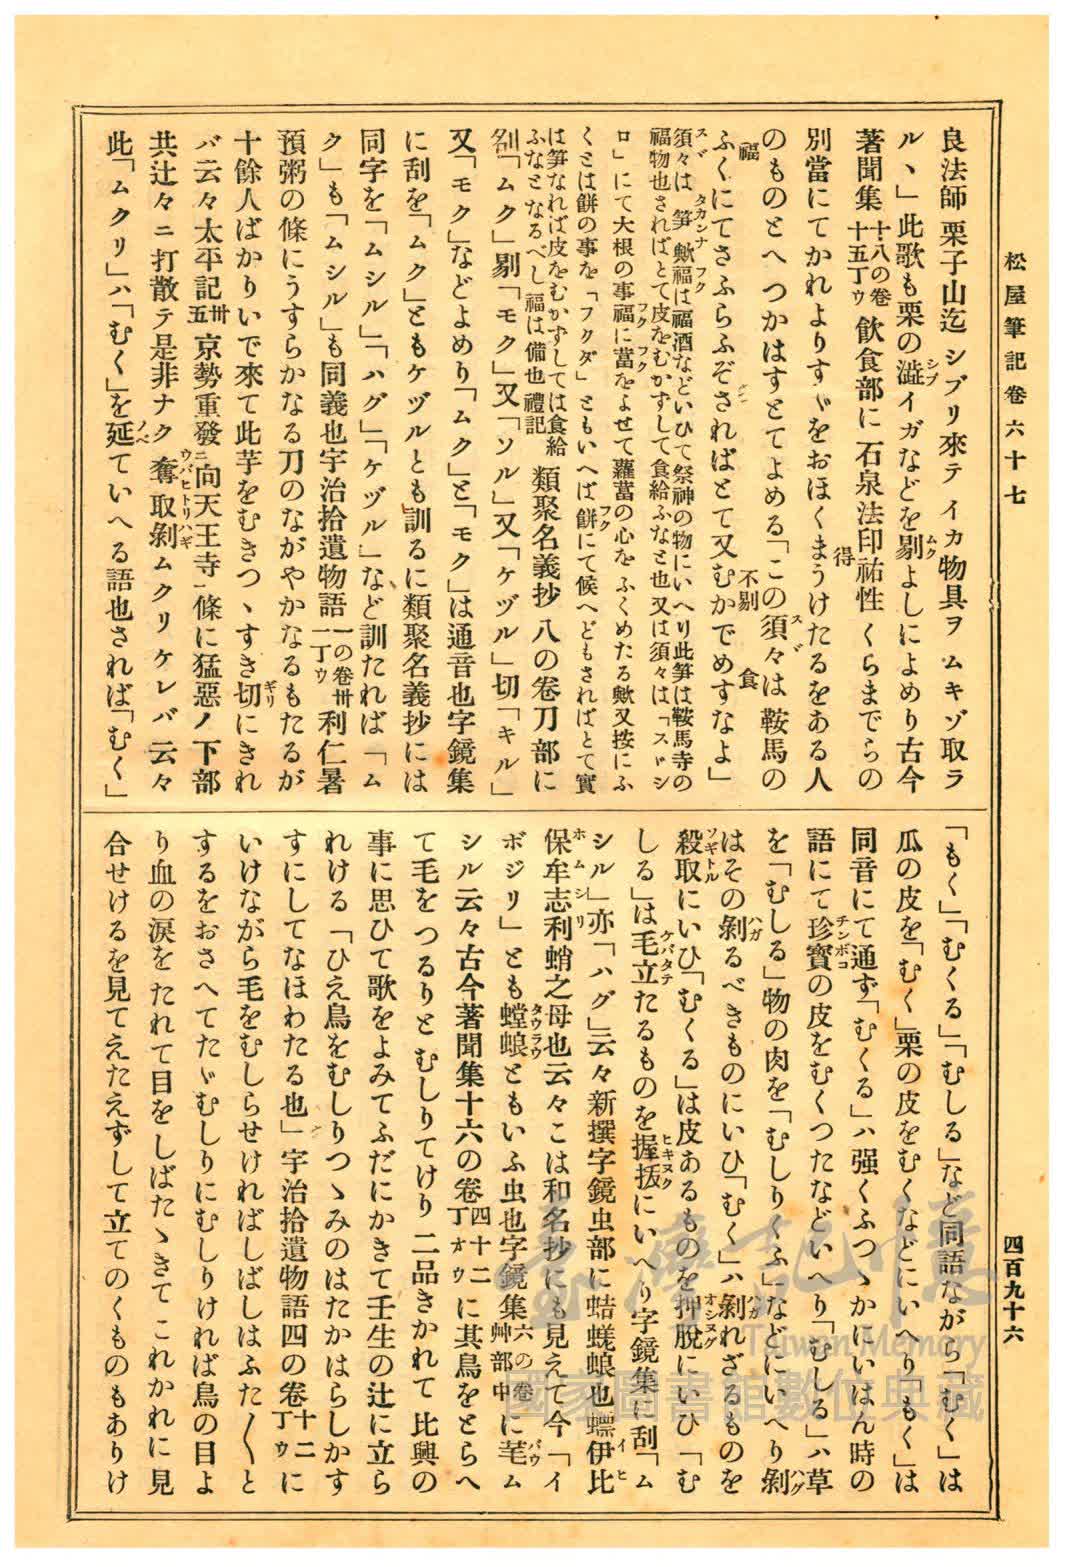 松屋筆記卷六十七
四百九十六
良法師 栗子山迄 シブリ來テ イカ物具ヲ ムキゾ取ラ
ルヽ」此歌も栗の澁イガなどを剔よしによめり古今
著聞集十八の卷十五丁ウ飮食部に 石泉法印祐性 くらまでらの
別當にてかれよりすゞをおほくまうけたるをある人
のものとへつかはすとてよめる「この須々は 鞍馬の
ふくにてさふらふぞさればとて又むかでめすなよ」
須々は 笋 歟福は福酒などいひて祭神の物にいへり此笋は鞍馬寺の
福物也さればとて皮をむかずして食給ふなと也又は須々は「スヾシ
ロ」にて大根の事福に葍をよせて蘿葍の心をふくめたる歟又按にふ
くとは餅の事を「フクダ」ともいへば餅にて候へどもさればとて實
は笋なれば皮をむかずしては食給
ふなとなるべし福は備也禮記 類聚名義抄 八の卷刀部に
「ムク」剔「モク」又「ソル」又「ケヅル」切「キル」
又「モク」などよめり「ムク」と「モク」は通音也字鏡集
に刮を「ムク」ともケヅルとも訓るに類聚名義抄には
同字を「ムシル」「ハグ」「ケヅル」など訓たれば「ム
ク」も「ムシル」も同義也宇治拾遺物語一の卷卅一丁ウ利仁暑
預粥の條にうすらかなる刀のながやかなるもたるが
十餘人ばかりいで來て此芋をむきつヽすき切にきれ
バ云々太平記卅五京勢重發向天王寺一條に猛惡ノ下部
共辻々ニ打散テ是非ナク 奪取剝ムクリケレバ云々
此「ムクリ」ハ「むく」を延ていへる語也されば「むく」
「もく」「むくる」「むしる」など同語ながら「むく」は
瓜の皮を「むく」栗の皮をむくなどにいへり「もく」は
同音にて通ず「むくる」ハ强くふつヽかにいはん時の
語にて珍寳の皮をむくつたなどいへり「むしる」ハ草
を「むしる」物の肉を「むしりくふ」などにいへり剝
はその剝るべきものにいひ「むく」ハ剝れざるものを
殺取にいひ「むくる」は皮あるものを押脫にいひ「む
しる」は毛立たるものを握扳にいへり字鏡集に刮「ム
シル」亦「ハグ」云々新撰字鏡虫部に蛣蟯蜋也螵伊比
保牟志利蛸之母也云々こは和名抄にも見えて今「イ
ボジリ」とも螳蜋ともいふ虫也字鏡集六の卷艸部中に芼ム
シル云々古今著聞集十六の卷四十二丁オウに其鳥をとらへ
て毛をつるりとむしりてけり 二品きかれて 比興の
事に思ひて歌をよみてふだにかきて壬生の辻に立ら
れける「ひえ鳥をむしりつゝみのはたかはらしかす
すにしてなはわたる也」宇治拾遺物語四の卷十二丁ウに
いけながら毛をむしらせければしばしはふた〱と
するをおさへてたゞむしりにむしりければ鳥の目よ
り血の涙をたれて目をしばたゝきてこれかれに見
合せけるを見てえたえずして立てのくものもありけ
臺灣記憶
Taiwan Memory
國家圖書館數位典藏